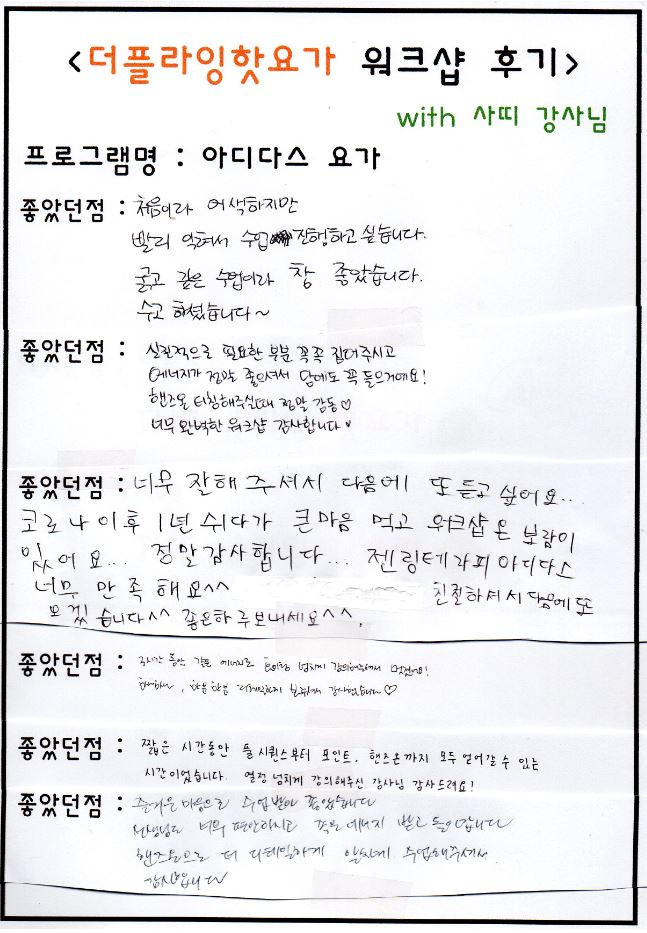 <더플라잉핫요가 워크샵 후기>
with 사띠 강사님
프로그램명 : 아디다스 요가
좋았던점 : 처음이라 어색하지만
빨리 익혀서 수업 진행하고 싶습니다.
굵고 깊은 수업이라 참 좋았습니다.
수고 하셨습니다~
좋았던점 : 실전적으로 필요한 부분 꼭꼭 집어주시고
에너지가 정말 좋으셔서 담에도 꼭 들으거에요!
핸즈온 터칭해주실때 정말 감동♡
너무 완벽한 워크샵 감사합니다♥
좋았던점 : 너무 잘해주셔서 다음에 또 듣고 싶어요...
코로나 이후 1년 쉬다가 큰마음 먹고 워크샵온 보람이
있어요... 정말감사합니다... 젠링테라피 아디다스
너무 만족해요^^ 친절하셔서 다음에 또
오겠습니다^^ 좋은하루보내세요^^.
좋았던점 : 3시간 동안 같은 에너지로 넘치게 강의해주셔서 멋졌어요!
감사했습니다♡
좋았던점 : 짧은 시간동안 풀 시퀀스부터 포인트, 핸즈온까지 모두 얻어갈 수 있는
시간이었습니다. 열정 넘치게 강의해주신 강사님 감사드려요!
좋았던점 : 즐거운 마음으로 수업받아 좋았습니다
선생님도 너무 편안하시고 좋은 에너지 받고 돌아갑니다
핸즈온으로 더 디테일하게 알차게 수업해주셔서
감사합니다